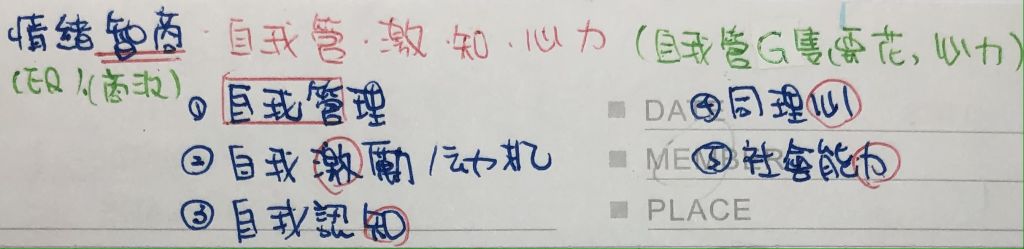 情緒智商．自我管．激．知．心力（自我管G隻雲花，心力）
(EQ/商数)
① 自我管理
DATE ④同理心
② 自我激勵/动机
MEMBER ⑤社會能力
③ 自我認知
PLACE